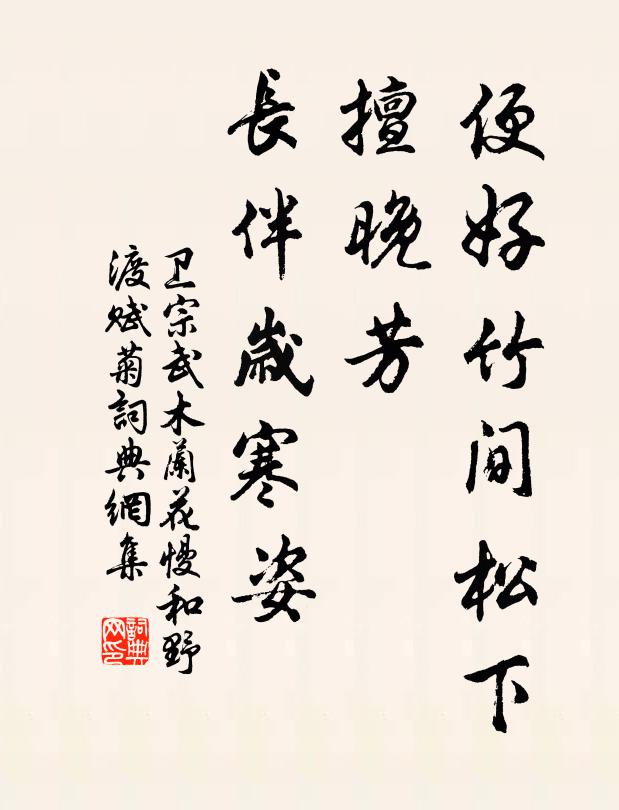 便好竹間松下
擅晚芳
長伴歲寒姿
卫宗武木蘭花慢和野
渡赋菊詞典網集
詞典
网印